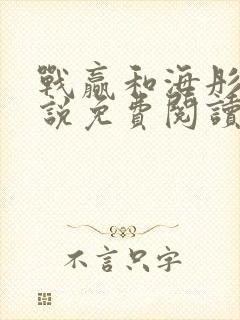 戰贏和海彤
說免費閱讀
不言只字